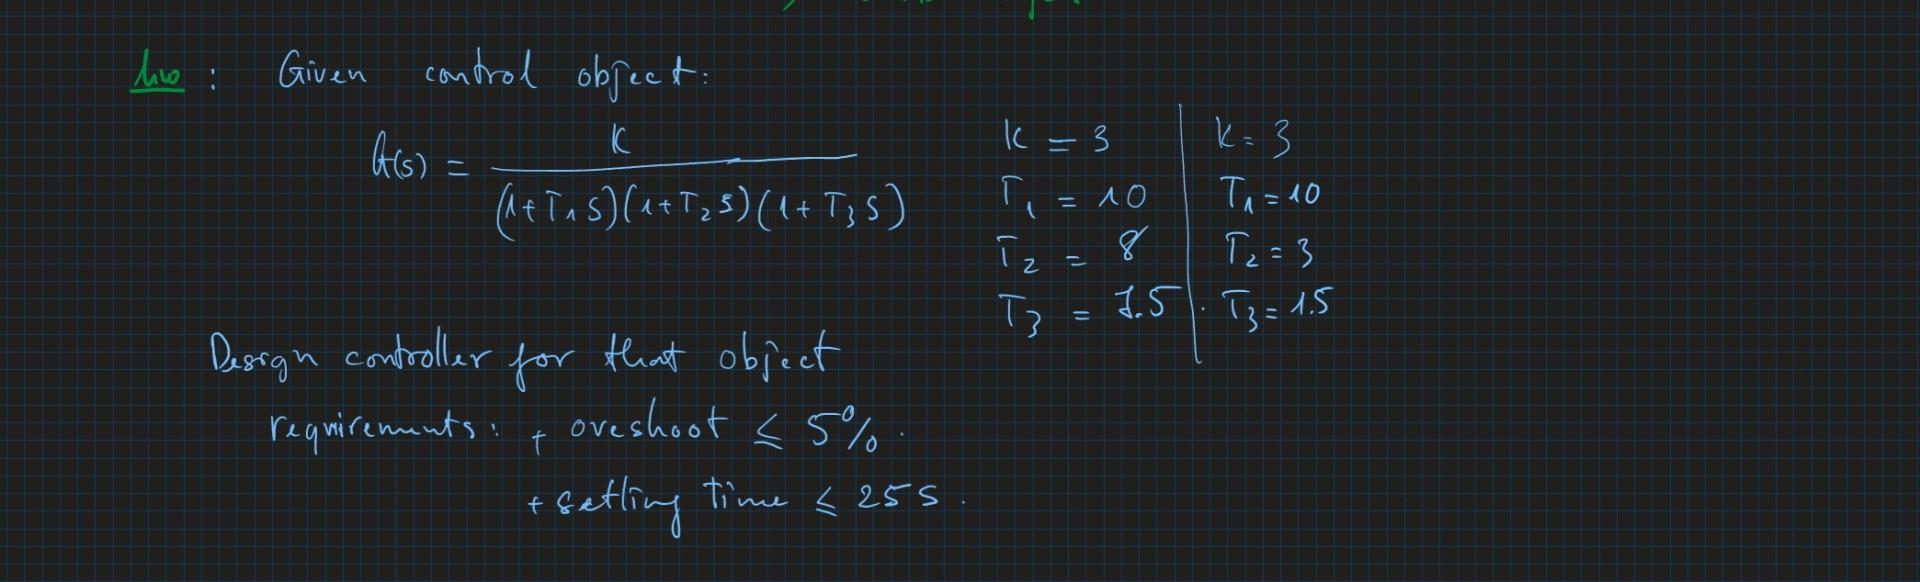 hw : Given control object:
G(s) = K / (1+T₁S)(1+T₂S)(1+T₃S)
K = 3 | K = 3
T₁ = 10 | T₁ = 10
T₂ = 8 | T₂ = 3
T₃ = 7.5 | T₃ = 1.5
Design controller for that object
requirements: + oveshoot ≤ 5%.
+ settling time ≤ 25 s.